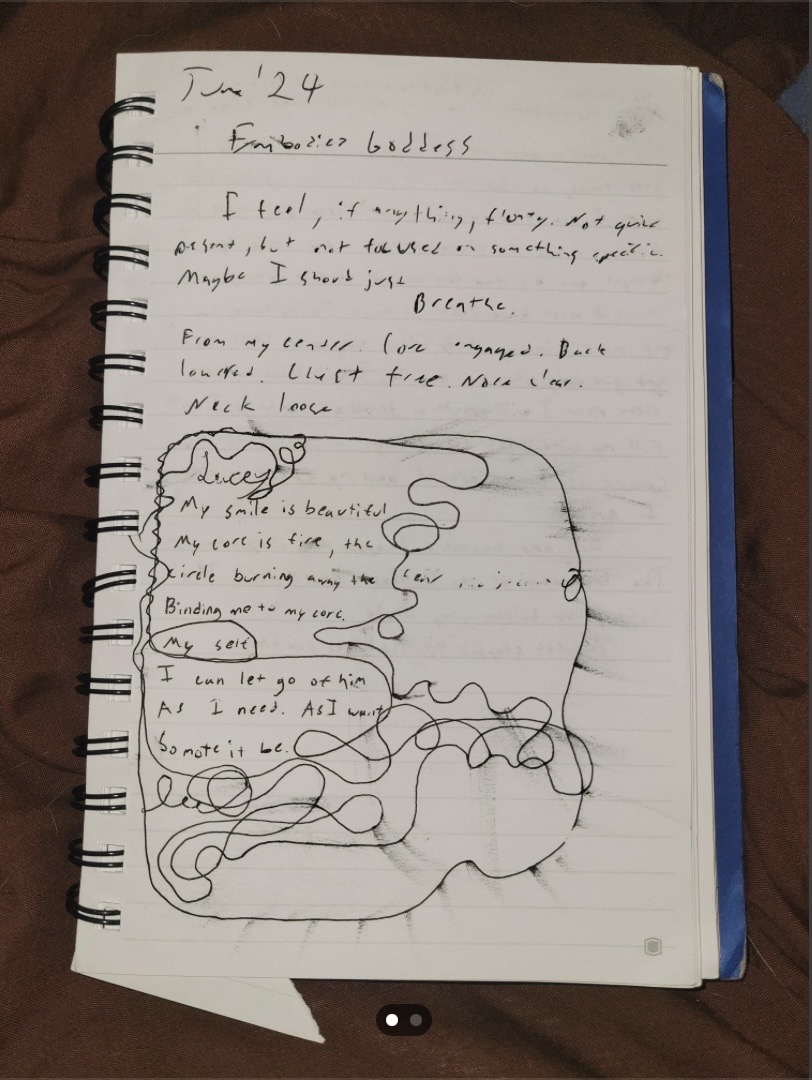 June '24
Embodied Goddess
I feel, if anything, floaty. Not quite
present, but not focused on something specific.
Maybe I should just
Breathe.
From my center. Core engaged. Back
Chest free. Nose clear.
Neck loose
Lucey
My smile is beautiful
My core is fire, the
circle burning away the
Binding me to my core.
My self
I can let go of him
As I need. As I want
So mote it be.